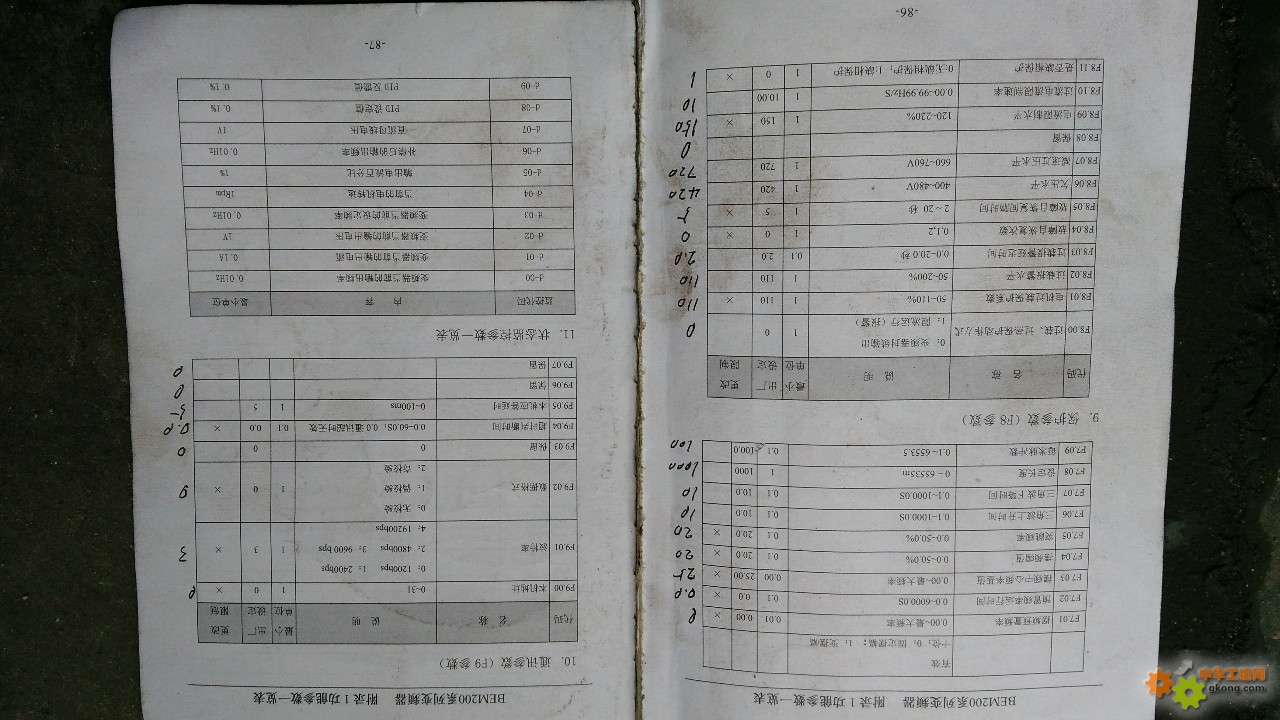 BEM200系列变频器 附录1功能参数一览表
有效
十位：0，固定摆幅；1，变摆幅
F7.01 摆频预置频率 0.00~最大频率 0.01 0.00 × 0
F7.02 预置频率运行时间 0.0~6000.0S 0.1 0.0 × 0.0
F7.03 摆频中心频率基值 0.00~最大频率 0.00 25.00 × 25
F7.04 摆频幅值 0.0~50.0% 0.1 20.0 × 20
F7.05 突跳频率 0.0~50.0% 0.1 20.0 × 20
F7.06 三角波上升时间 0.1~1000.0S 0.1 10.0 10
F7.07 三角波下降时间 0.1~1000.0S 0.1 10.0 10
F7.08 设定长度 0~65535m 1 1000 1000
F7.09 每米脉冲数 0.1~6553.5 0.1 100.0 100
9. 保护参数（F8参数）
代码 名 称 说 明 最小单位 出厂设定 更改限制
F8.00 过载、过热保护动作方式 0：变频器封锁输出 1 0 0
1：限流运行（报警）
F8.01 电机过载保护系数 50~110% 1 110 × 110
F8.02 过载报警水平 50~200% 1 110 110
F8.03 过载报警延迟时间 0.0~20.0 秒 0.1 2.0 2.0
F8.04 故障自恢复次数 0,1,2 1 0 × 0
F8.05 故障自恢复间隔时间 2～20 秒 1 5 × 5
F8.06 欠压水平 400~480V 1 420 420
F8.07 减速过压水平 660~760V 1 720 720
F8.08 保留 0
F8.09 电流限制水平 120~220% 1 150 × 150
F8.10 过流电流限制速率 0.00~99.99Hz/S 1 10.00 10
F8.11 是否缺相保护 0:无缺相保护；1:缺相保护 1 0 × 1
-86-
BEM200系列变频器 附录1功能参数一览表
10. 通讯参数（F9参数）
代码 名 称 说 明 最小单位 出厂设定 更改限制
F9.00 本机地址 0~31 1 0 × 0
F9.01 波特率 0：1200bps 1：2400bps 1 3 × 3
2：4800bps 3：9600 bps
4：19200bps
F9.02 数据格式 0：无校验 1 0 × 0
1：偶校验
2：奇校验
F9.03 保留 0 0 0
F9.04 超时判断时间 0.0~60.0S，0.0 通讯超时无效 0.1 0.0 × 0.0
F9.05 本机应答延时 0~100ms 1 5 5
F9.06 保留 0
F9.07 保留 0
11. 状态监控参数一览表
监控代码 内 容 最小单位
d-00 变频器当前的输出频率 0.01Hz
d-01 变频器当前的输出电流 0.1A
d-02 变频器当前的输出电压 1V
d-03 变频器当前的设定频率 0.01Hz
d-04 当前的电机转速 1Rpm
d-05 输出电流百分比 1%
d-06 补偿后的输出频率 0.01Hz
d-07 直流母线电压 1V
d-08 PID 设定值 0.1%
d-09 PID 反馈值 0.1%
-87-
中华工控网
gkong.com